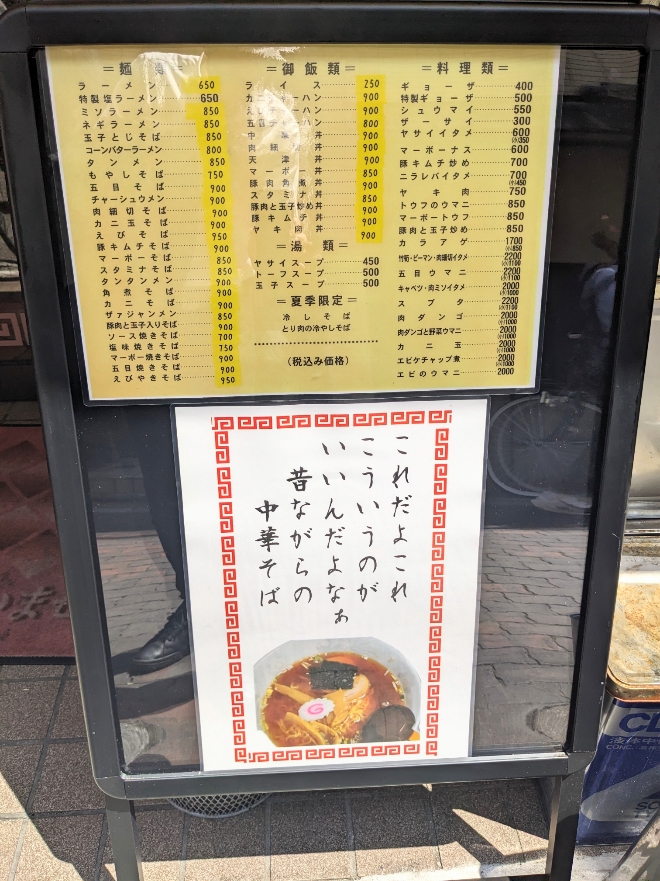 ＝麺類＝
ラーメン 650
特製塩ラーメン 650
ミソラーメン 850
ネギラーメン 850
玉子とじそば 850
コーンバターラーメン 800
タンメン 850
もやしそば 750
五目そば 900
チャーシュウメン 900
肉細切そば 900
カニ玉そば 900
えびそば 950
豚キムチそば 900
マーボーそば 850
スタミナそば 850
タンタンメン 900
角煮そば 900
カニそば 900
ザァジャンメン 850
豚肉と玉子入りそば 900
ソース焼きそば 700
塩味焼きそば 750
マーボー焼きそば 900
五目焼きそば 900
えびやきそば 950
＝御飯類＝
ライス 250
カニチャーハン 900
900
五目チャーハン 800
中華丼 900
肉細切丼 900
天津丼 900
マーボー丼 850
豚肉角煮丼 900
スタミナ丼 850
豚肉と玉子炒め丼 900
豚キムチ丼 900
ヤキ肉丼 900
＝湯類＝
ヤサイスープ 450
トーフスープ 500
玉子スープ 500
＝夏季限定＝
冷しそば
とり肉の冷やしそば
（税込み価格）
＝料理類＝
ギョーザ 400
特製ギョーザ 500
シュウマイ 550
ザーサイ 300
ヤサイイタメ 600
(小)350
マーボーナス 600
豚キムチ炒め 700
ニラレバイタメ 700
(小)450
ヤキ肉 750
トウフのウマニ 850
マーボートウフ 850
豚肉と玉子炒め 850
カラアゲ 1700
(小)850
竹筍・ピーマン・肉細切イタメ 2200
(小)1100
五目ウマニ 2200
(小)1100
キャベツ・肉ミソイタメ 2000
(小)1000
スブタ 2200
(小)1100
肉ダンゴ 2000
(小)1000
肉ダンゴと野菜ウマニ 2000
(小)1000
カニ玉 2000
(小)1000
エビケチャップ煮 2000
(小)1000
エビのウマニ 2000
これだよこれ
こういうのが
いいんだよなぁ
昔ながらの
中華そば